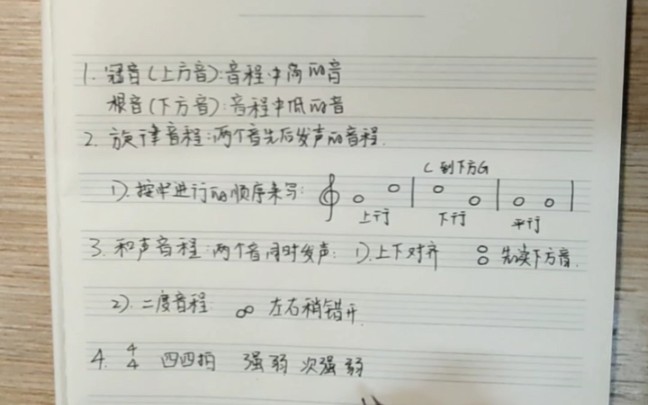 1. 冠音(上方音):音程中高的音
根音(下方音):音程中低的音
2. 旋律音程:两个音先后发声的音程.
C到下方G
1).按半进行的顺序来写:
上行 下行 平行
3. 和声音程:两个音同时发声: 1).上下对齐 先读下方音.
2).二度音程 左右稍错开.
4. 4/4 四四拍 强 弱 次强 弱